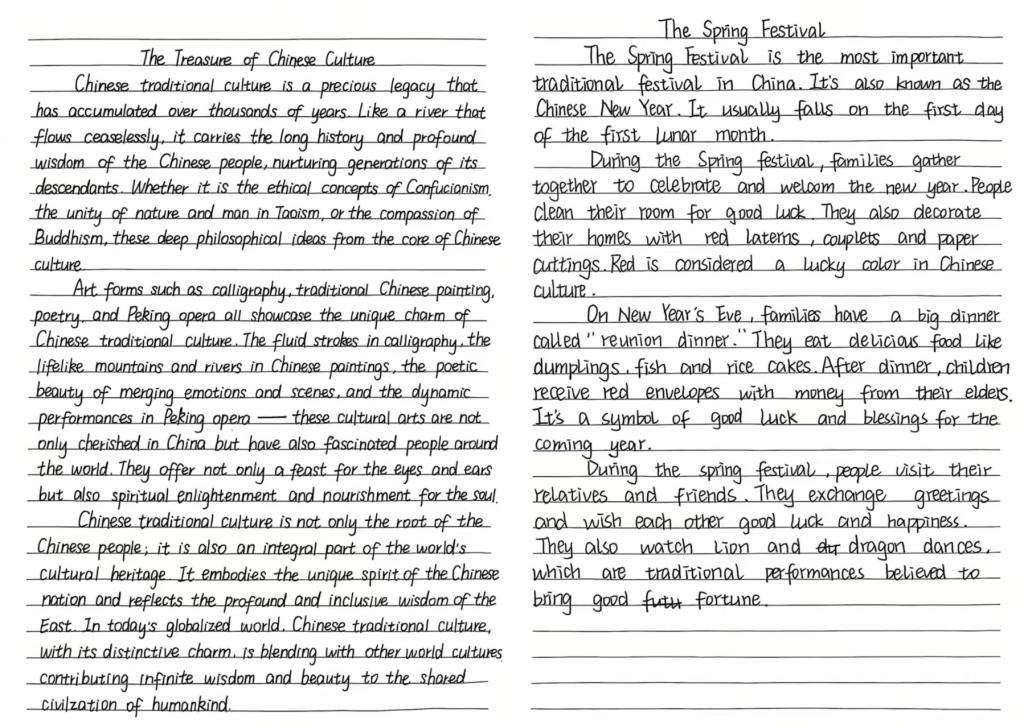 The Treasure of Chinese Culture
Chinese traditional culture is a precious legacy that
has accumulated over thousands of years. Like a river that
flows ceaselessly, it carries the long history and profound
wisdom of the Chinese people, nurturing generations of its
descendants. Whether it is the ethical concepts of Confucionism,
the unity of nature and man in Taoism, or the compassion of
Buddhism, these deep philosophical ideas from the core of Chinese
culture.
Art forms such as calligraphy, traditional Chinese painting,
poetry, and Peking opera all showcase the unique charm of
Chinese traditional culture. The fluid strokes in calligraphy, the
lifelike mountains and rivers in Chinese paintings, the poetic
beauty of merging emotions and scenes, and the dynamic
performances in Peking opera — these cultural arts are not
only cherished in China but have also fascinated people around
the world. They offer not only a feast for the eyes and ears
but also spiritual enlightenment and nourishment for the soul.
Chinese traditional culture is not only the root of the
Chinese people; it is also an integral part of the world's
cultural heritage. It embodies the unique spirit of the Chinese
nation and reflects the profound and inclusive wisdom of the
East. In today's globalized world, Chinese traditional culture,
with its distinctive charm, is blending with other world cultures
contributing infinite wisdom and beauty to the shared
civilzation of humankind.
The Spring Festival
The Spring Festival is the most important
traditional festival in China. It's also known as the
Chinese New Year. It usually falls on the first day
of the first lunar month.
During the Spring festival, families gather
together to celebrate and welcom the new year. People
clean their room for good luck. They also decorate
their homes with red laterns, couplets and paper
cuttings. Red is considered a lucky color in Chinese
culture.
On New Year's Eve, families have a big dinner
called "reunion dinner." They eat delicious food like
dumplings, fish and rice cakes. After dinner, children
receive red envelopes with money from their elders.
It's a symbol of good luck and blessings for the
coming year.
During the spring festival, people visit their
relatives and friends. They exchange greetings
and wish each other good luck and happiness.
They also watch lion and dragon dances,
which are traditional performances believed to
bring good fortune.